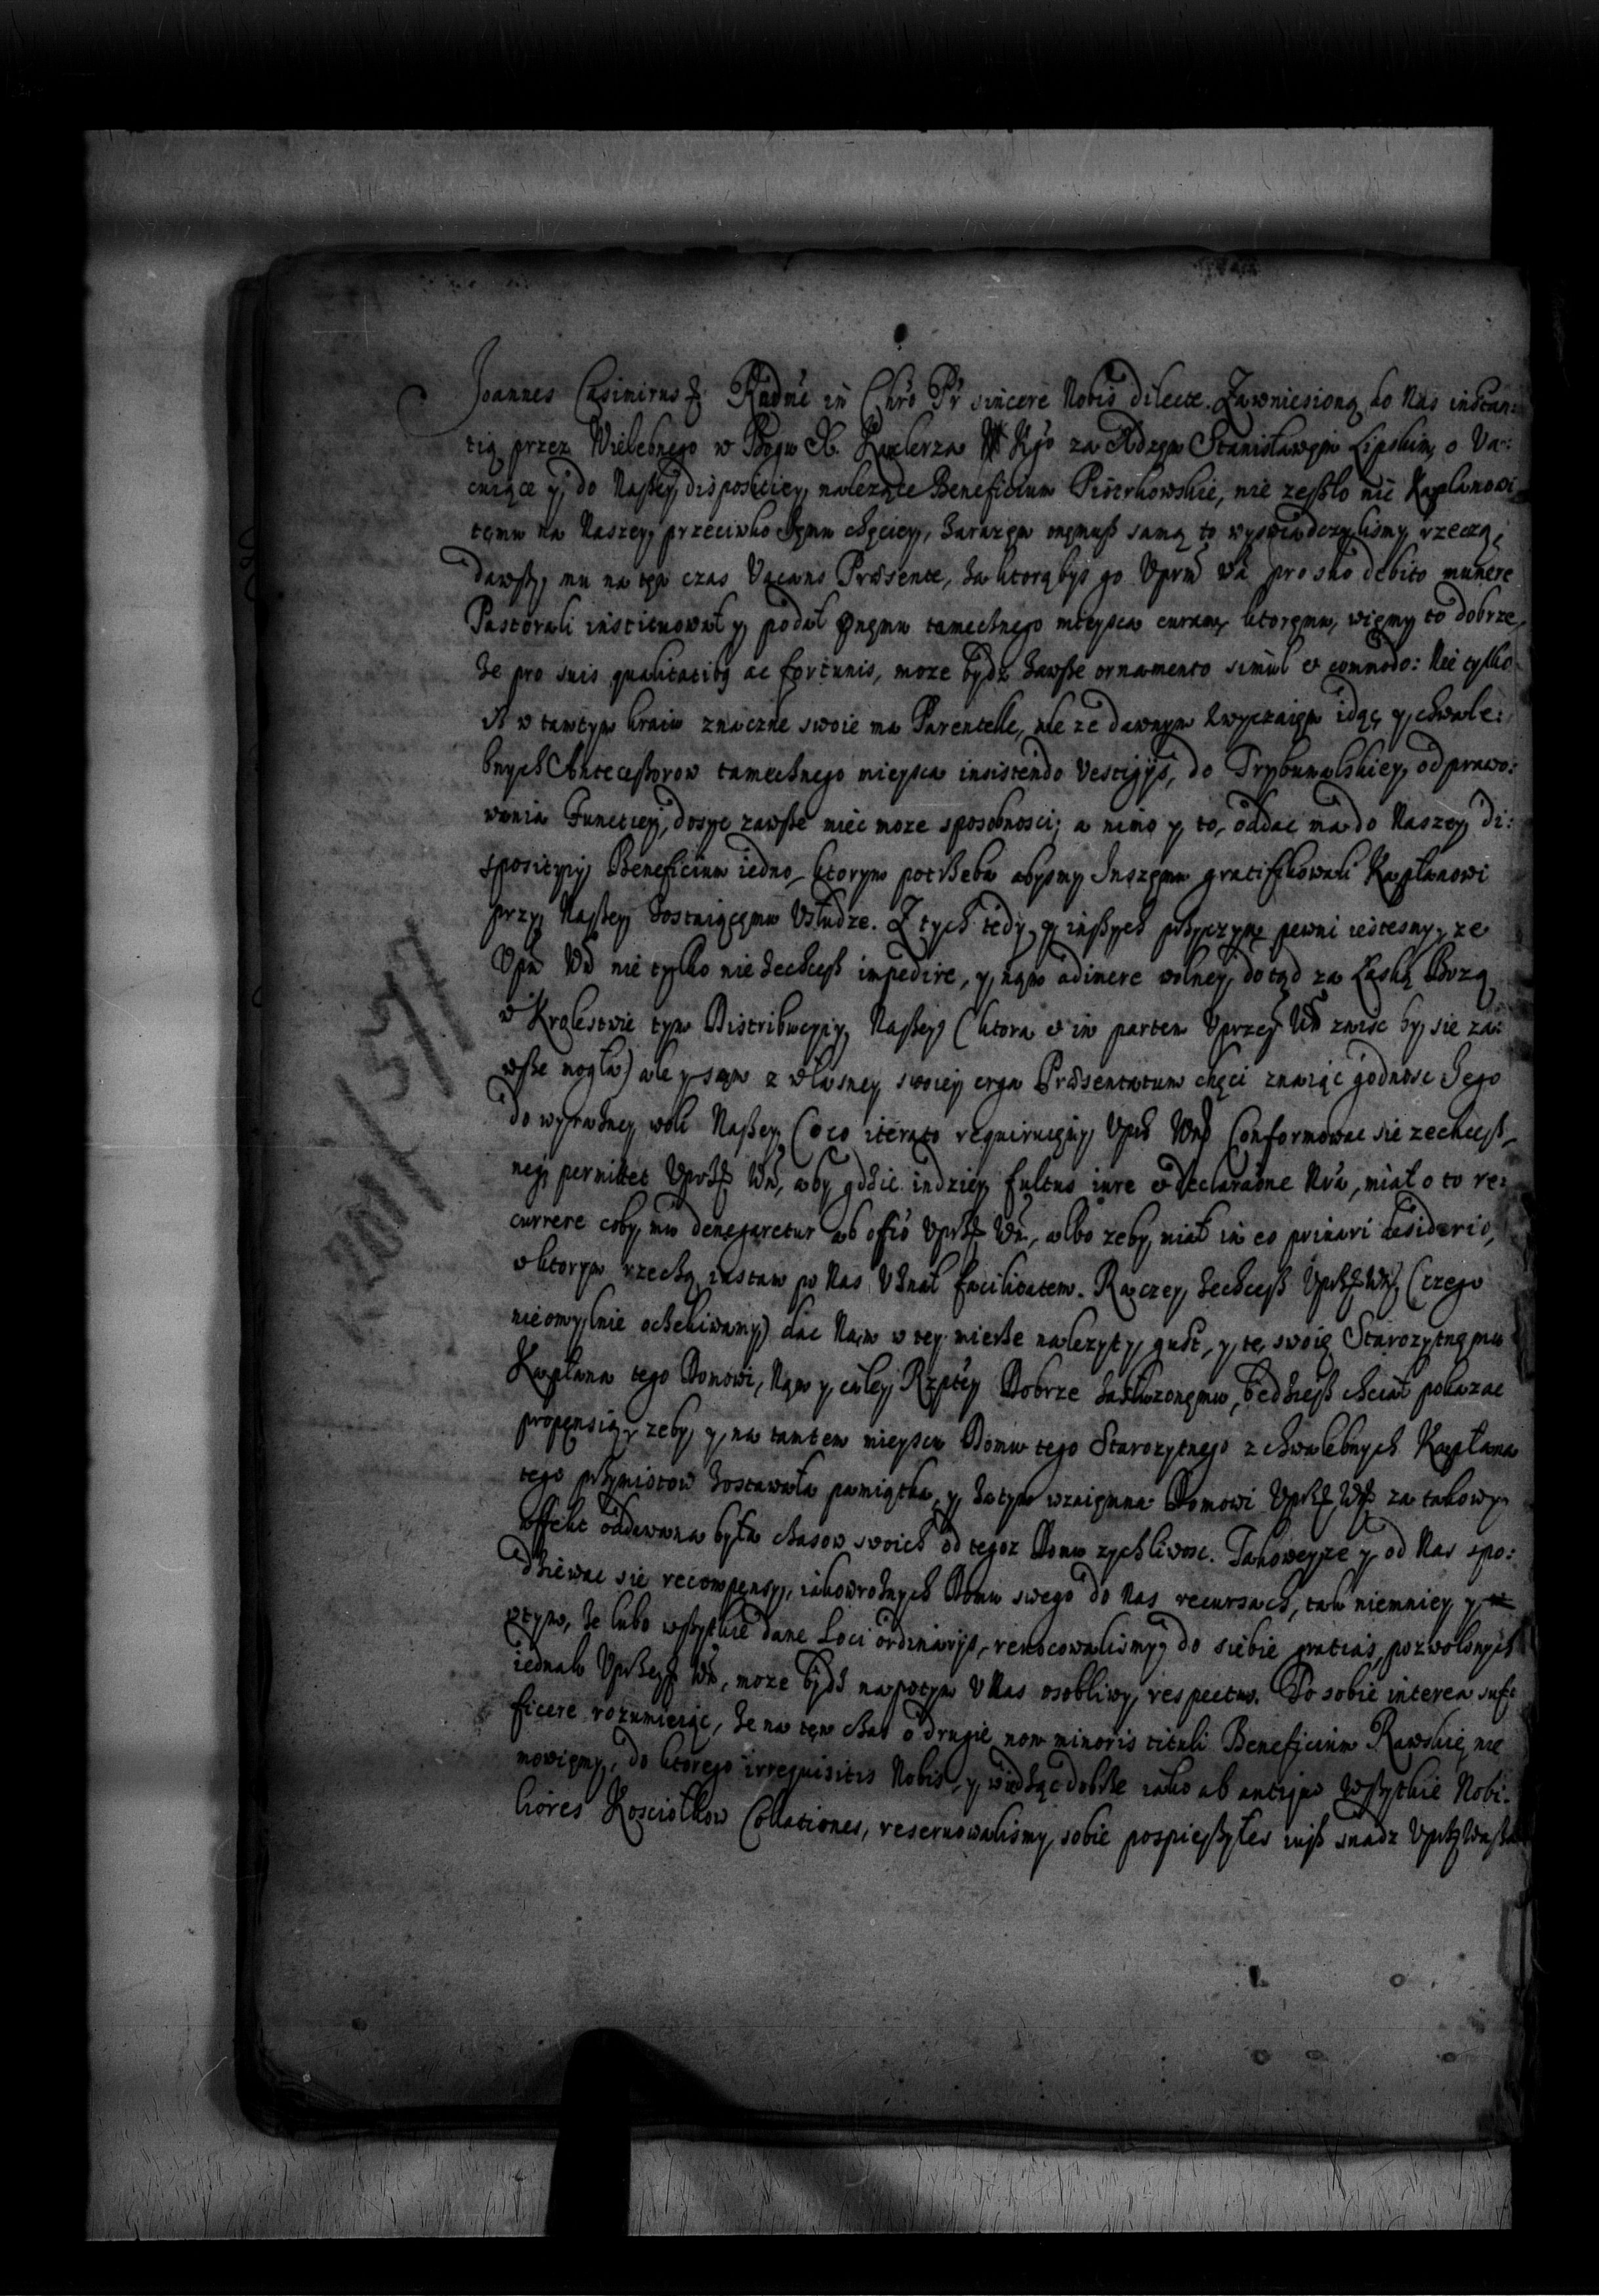 Joannes Casimirus &. Rndme in Chro Pr sincere Nobis dilecte. Za wniesioną do Nas instan:
tią przez Wielebnego w Bogu X. Kanclerza Kgo za Xdzem Stanisławem Lipskim, o Va:
cuiące y do Naszey dispositiey należące Beneficium Piotrkowskie, nie zeszło nic Kapłanowi
temu na Naszey przeciwko Jemu chęciey, zarazem onemusz samą to wyswiadczylismy rzeczą,
dawszy mu na ten czas Vacans Præsente, za ktorą bys go Vprm Wa pro suo debito munere
Pastorali instituował y podał onemu tamecznego mieysca curam, ktoremu, wiemy to dobrze,
że pro suis qualitatibus ac fortunis, moze bydz zawsze ornamento simul et commodo: Nie tylko
iż w tamtym kraiu znaczne swoie ma Parentelle, ale ze dawnym zwyczaiem idąc y chwale:
bnych Antecessorow tamecznego mieysca insistendo Vestigijs, do Trybunalskiey odprawo:
wania Functiey, dosyc zawsze miec moze sposobnosci; a mimo y to, oddac ma do Naszey di:
spositiey Beneficium iedno, ktorym potrzeba abysmy Inszemu gratifikowali Kapłanowi
przy Naszey zostaiącemu Vsłudze. Z tych tedy y inszych przyczyn pewni iestesmy, ze
Vpr Wa nie tylko nie zechcesz impedire, y nam adimere wolney, dotąd za Łaską Bozą
w Krolestwie tym Distribucyiy Naszey (ktora et in partem Vprzey Wm zniść by sie za:
wsze mogła) ale y sam z własney swoiey erga Præsentatum chęci znaiąc godnosc Jego
do wyrazney woli Naszey (oco iterato requiruiemy Vpr Wm) conformowac sie zechcesz,
ney permittet Vprz Wm, aby gdzie indziey fultus iure et declaratione Nra, miał o to re:
currere coby mu denegaretur ab offio Vprz Wm, albo zeby miał in eo privari desiderio,
w ktorym rzeczą iustam po Nas Vznał facilitatem. Raczey zechcesz Vprz Wm (czego
nieomylnie oczekiwamy) dac Nam w tey mierze nalezyty gust, y tę swoię Starozytnemu
Kapłana tego Domowi, Nam y całey Rzptey Dobrze zasłuzonemu, będziesz chciał pokazac
propensią, zeby y na tamtem mieyscu Domu tego Starozytnego z chwalebnych Kapłana
tego przymiotow zostawała pamiątka, y zatym wzaiemna Domowi Vprz Wm za takowy
affekt oddawana była czasow swoich od tegoz Domu zychliwosc. Takoweyze y od Nas spo:
dziewac sie recompensy, iako w roznych Domu swego do Nas recursach, tak niemniey y
w tym, że lubo wszytkie dane Loci ordinarijs, revocowalismy do siebie gratias, pozwolonych
iednak Vprzey Wm, moze bydz napotym V Nas osobliwy respectus. To sobie interea suf:
ficere rozumieiąc, że na ten czas o drugie non minoris tituli Beneficium Rawskie nie
mowiemy, do ktorego irrequisitis Nobis, y wiedząc dobrze iako ab antiquo Wszytkie Nobi:
liores Kosciołkow Collationes, reserwowalismy sobie pospieszyłes iusz snadz Vprz Wasza